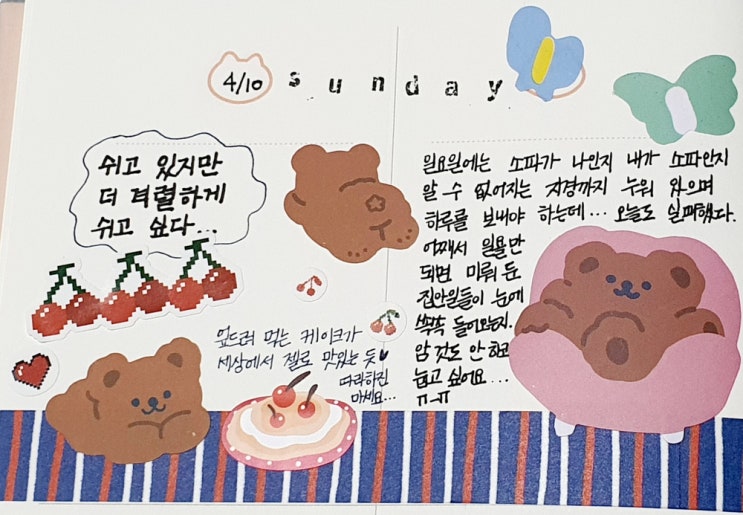 4/10 sunday
쉬고 있지만
더 격렬하게
쉬고 싶다...
일요일에는 소파가 나인지 내가 소파인지
알 수 없어지는 지경까지 누워 있으며
하루를 보내야 하는데... 오늘도 실패했다.
어째서 일욜만
되면 미뤄 둔
집안일들이 눈에
쏙쏙 들어오는지.
암 것도 안 하고
눕고 싶어요...
ㅠ-ㅠ
엎드려 먹는 케이크가
세상에서 젤로 맛있는 듯♥
따라하진
마세요...